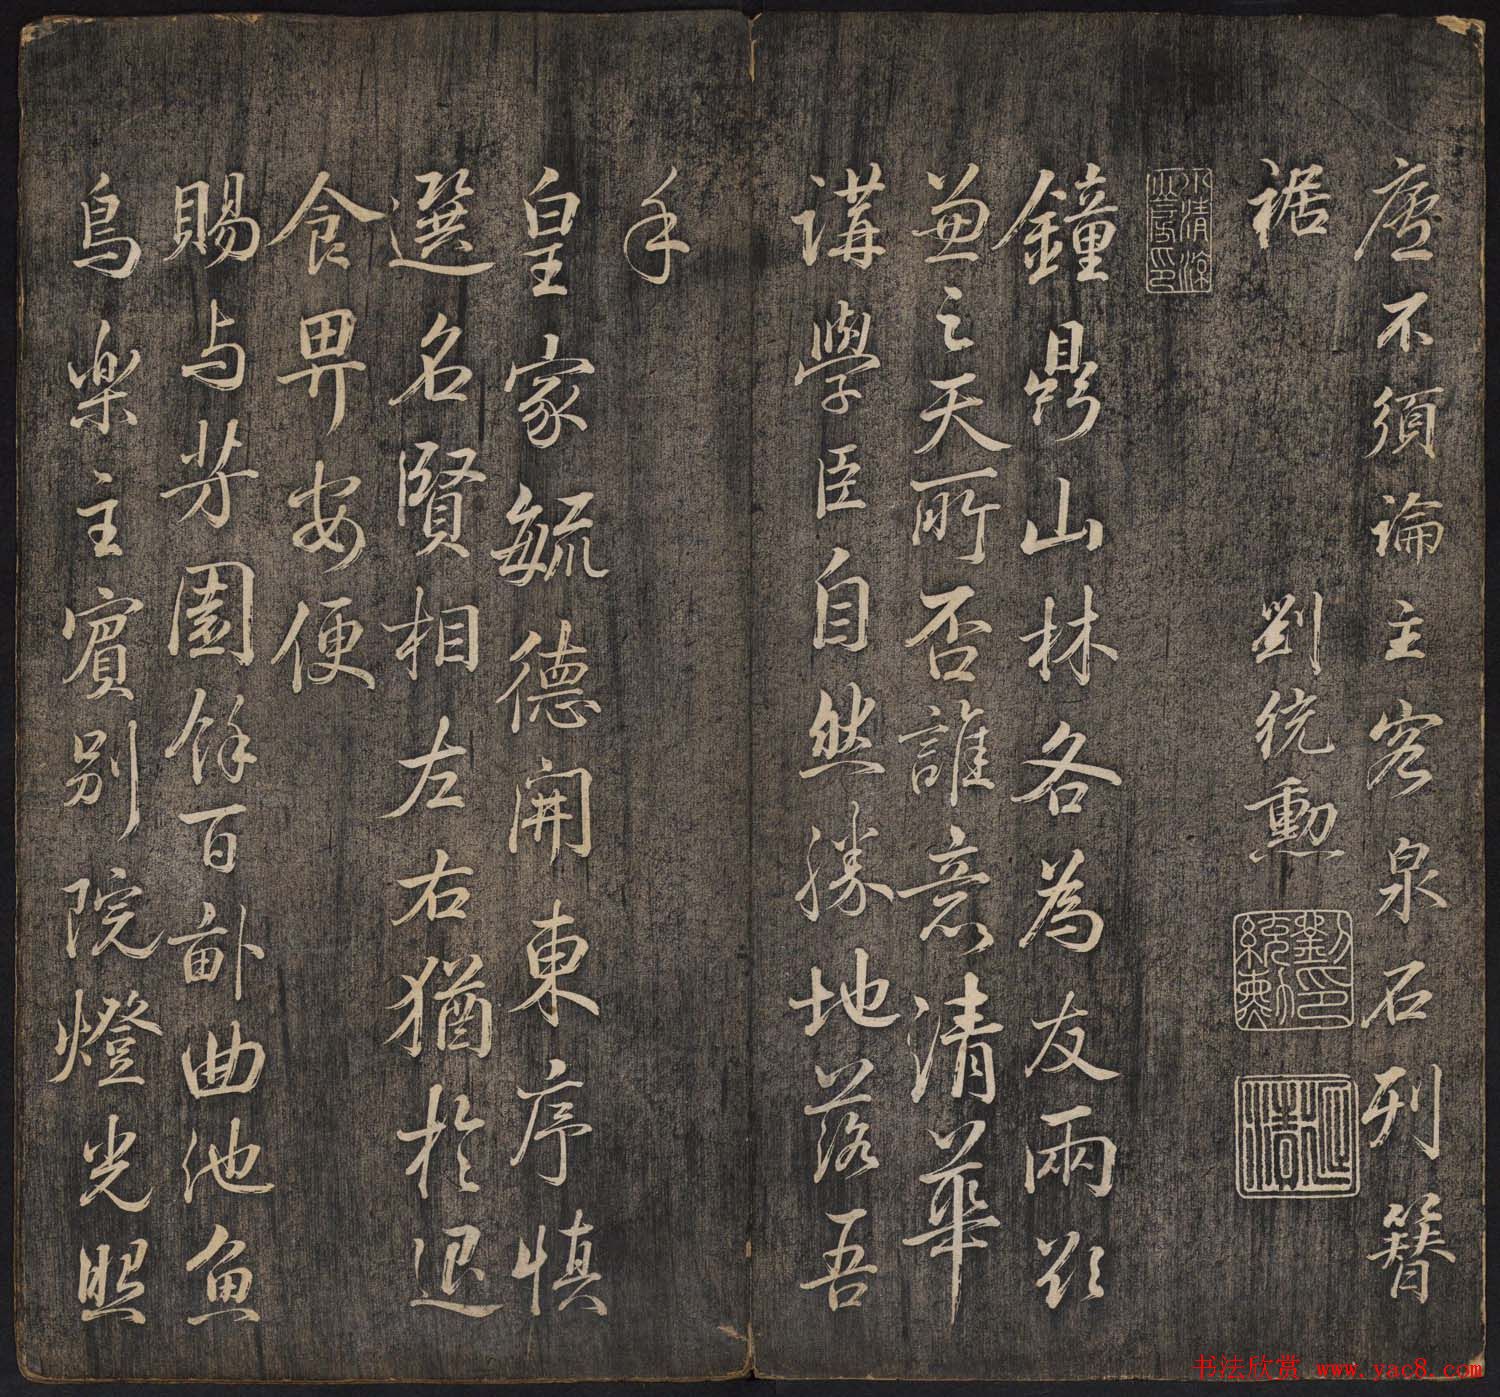 唐不須論主客泉石列簪
裾
劉統勳
劉統勳印
鐘鼎山林各為友兩欲
兼之天所否誰意清華
講學臣自然勝地落吾
手
皇家毓德開東序慎
選名賢相左右猶於退
食畀安便
賜与芳園餘百畝曲池魚
鳥樂主賓別院燈光照
书法欣赏 www.yac8.com